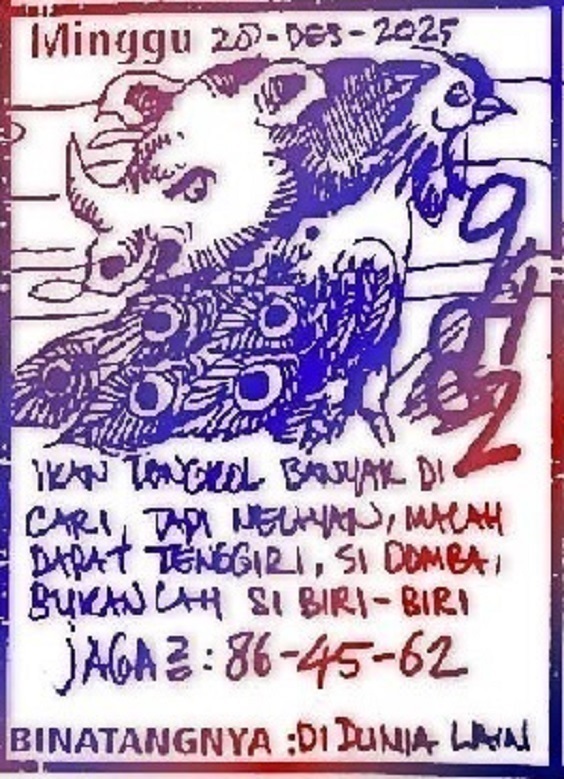 Minggu 28-DES-2025
9
4
8
2
IKAN TONGKOL BANYAK DI
CARI, TAPI NELAYAN, MALAH
DAPAT TENGGIRI, SI DOMBA,
BUKANLAH SI BIRI-BIRI
JAGA2: 86-45-62
BINATANGNYA :DI DUNIA LAIN